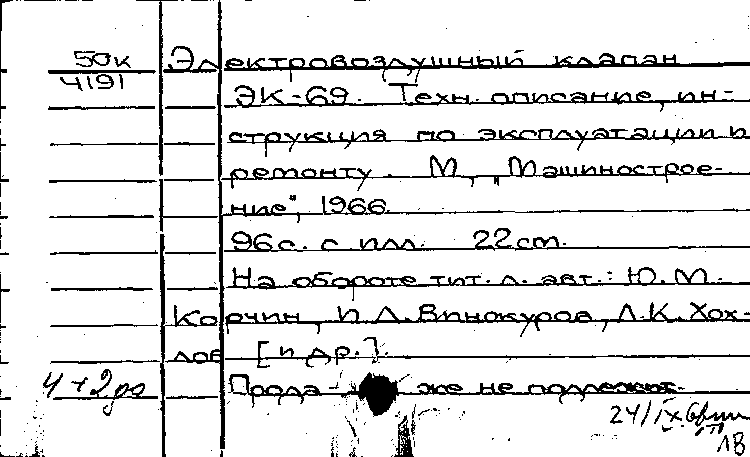 50к
4191
Электровоздушный клапан
ЭК-69. Техн. описание, ин-
струкция по эксплуатации и
ремонту. М., „Машинострое-
ние", 1966.
96 с. с илл. 22 cm.
На обороте тит. л. авт.: Ю. М.
Корчин, И. Л. Винокуров, Л. К. Хох-
лов [и др.].
Прода- же не подлежит.
4 + 2
24/IX